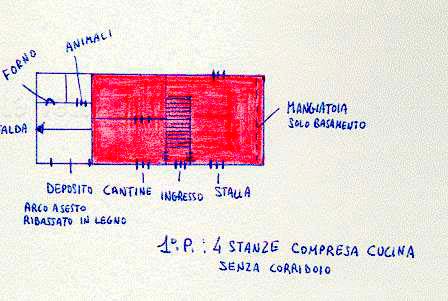 ANIMALI
FORNO
FALDA
MANGIATOIA
SOLO BASAMENTO
DEPOSITO CANTINE INGRESSO STALLA
ARCO A SESTO
RIBASSATO IN LEGNO
1° P. : 4 STANZE COMPRESA CUCINA
SENZA CORRIDOIO